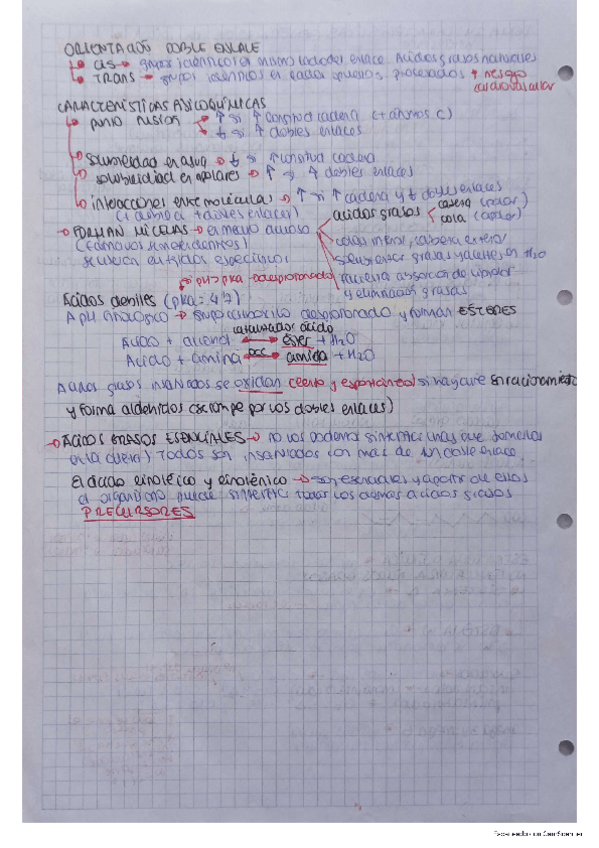 ORIENTACIÓN DOBLE ENLACE
CIS → grupos idénticos en mismo lado del enlace. Ácidos grasos naturales
TRANS → grupos idénticos en lados opuestos, procesados ↑ riesgo
cardiovascular
CARACTERÍSTICAS FISICOQUÍMICAS
punto fusión → ↑ si ↑ longitud cadena (+ átomos C)
↓ si ↑ dobles enlaces
solubilidad en agua → ↓ si ↑ longitud cadena
solubilidad en apolares → ↑ si ↑ dobles enlaces
interacciones entre moléculas → ↑ si ↑ cadena y ↓ dobles enlaces
FORMAN MICELAS → en medio acuoso
ácidos grasos cabeza (polar)
cola (apolar)
colas interior, cabeza exterior
solubilizar grasas y aceites en H2O
y eliminación grasas
pH > pka → desprotonado
Ácidos débiles (pka = 4'7)
A pH fisiológico → grupo carboxilo desprotonado y forman ÉSTERES
catalizador ácido
Ácido + alcohol ⟷ éster + H2O
Ácido + amina DCC amida + H2O
Ácidos grasos insaturados se oxidan (lento y espontáneo) si hay aire
y forma aldehídos (se rompe por los dobles enlaces)
→ ÁCIDOS GRASOS ESENCIALES → no los podemos sintetizar
en la dieta) Todos son insaturados con más de un doble enlace
El ácido linoleico y linolénico → son esenciales y a partir de ellos
el organismo puede sintetizar todos los demás ácidos grasos
PRECURSORES
Escaneado con CamScanner